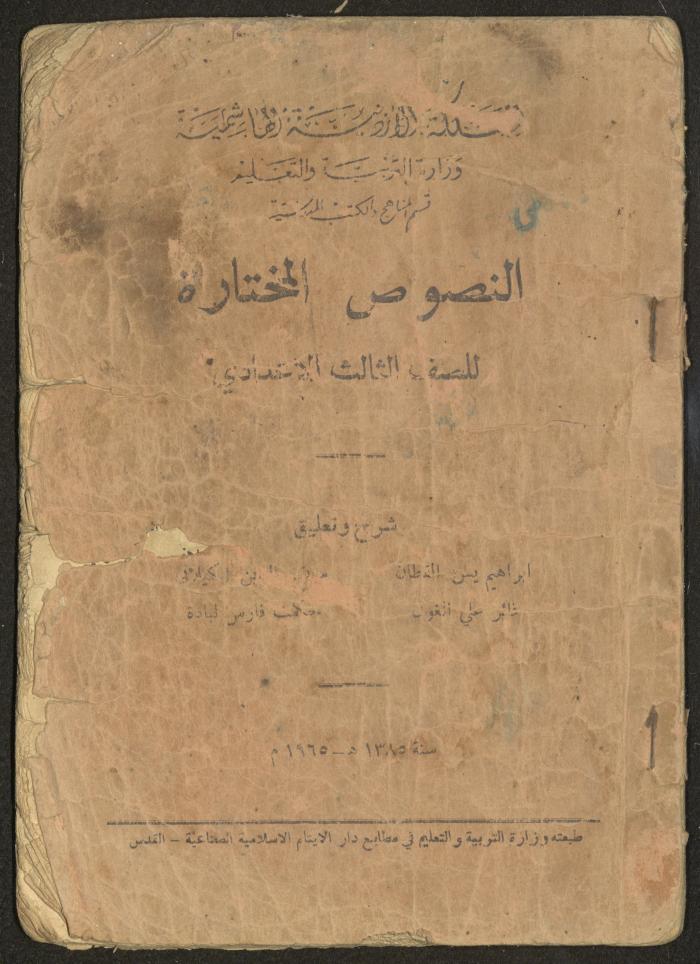 المملكة الأردنية الهاشمية
وزارة التربية والتعليم
قسم المناهج والكتب المدرسية
النصوص المختارة
للصف الثالث الاعدادي
شرح وتعليق
ابراهيم يسن القطان الدين الكيلاني
علي فارس لبادة
سنة ١٣٨٥ هـ - ١٩٦٥ م
طبعته وزارة التربية والتعليم في مطابع دار الايتام الاسلامية الصناعية - القدس